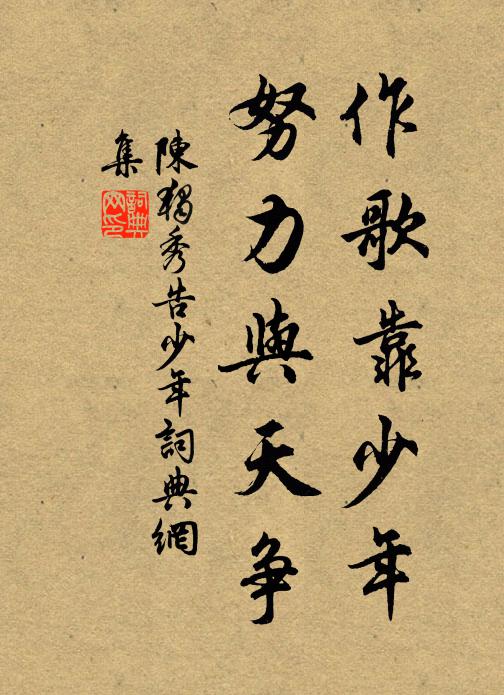 作歌靠少年
努力與天争
陳獨秀告少年詞典網
集
詞典网印